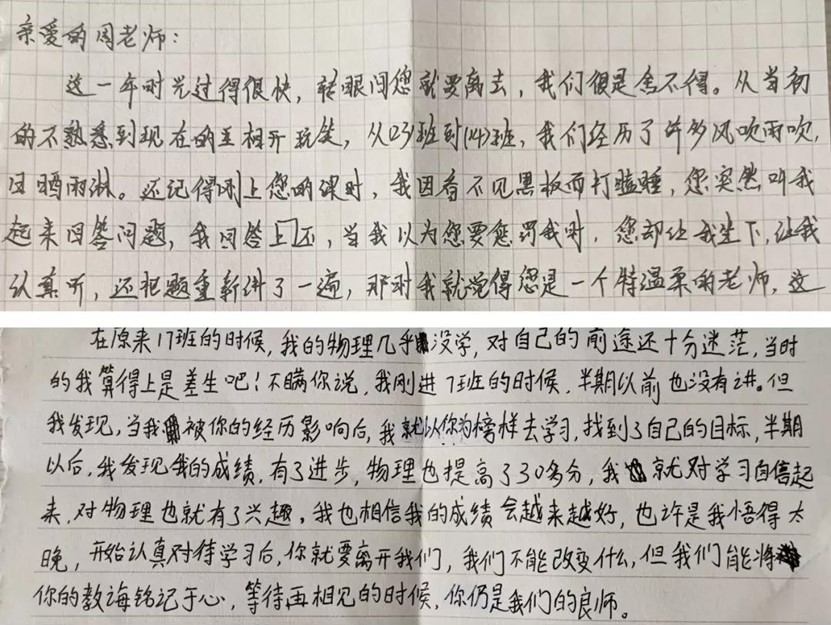 亲爱的周老师:
这一年时光过得很快,转眼间您就要离去,我们很是舍不得。从当初
的不熟悉到现在的互相开玩笑,从(23)班到(14)班,我们经历了许多风吹雨吹,
日晒雨淋。还记得刚上您的课时,我因看不见黑板而打瞌睡,您突然叫我
起来回答问题,我回答上区,当我以为您要您罚我时,您却让我坐下,让我
认真听,还把题重新讲了一遍,那时我就觉得您是一个特温柔的老师,这
在原来17班的时候,我的物理几乎没学,对自己的前途还十分迷茫,当时
的我算得上是差生吧!不瞒你说,我刚进7班的时候,半期以前也没有讲。但
我发现,当我被你的经历影响后,我就以你为榜样去学习,找到了自己的目标,半期
以后,我发现我的成绩,有了进步,物理也提高了30多分,我就对学习自信起
来,对物理也就有了兴趣。我也相信我的成绩会越来越好,也许是我悟得太
晚,开始认真对待学习后,你就要离开我们,我们不能改变什么,但我们能将
你的教诲铭记于心,等待再相见的时候,你仍是我们的良师。